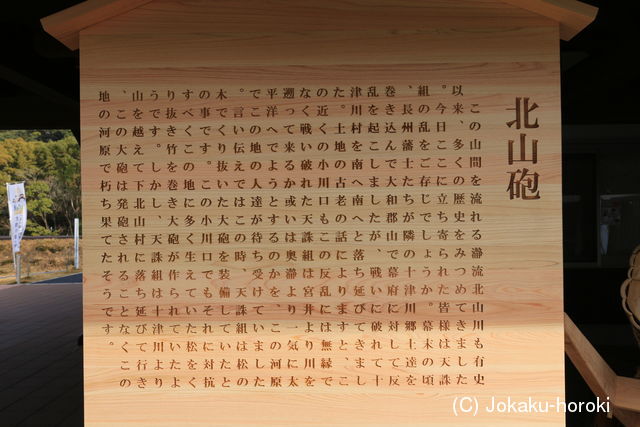 北山砲
この山間を流れる瀞流北山川も有史
以来、多くの歴史をみつめてきました
。今日ここに立ち寄られた皆様は天誅
組の乱をご存じでしょうか。幕末の頃
、長州藩士たちが隣の十津川郷士達を
巻き込んで大和郡山で幕府に対して反
乱を起こしましたが、戦いに破れて十
津川村を南へ南へと落ち延びてきまし
た。土地の古老の話によりますと、こ
の近くの小川口もこの反乱には無縁で
なく戦い破れた天誅組は宮井より川を
遡って来るか或いは奥瀞より一気に太
平洋へでようとするか、この河原
でこの地の人達が待ち受けていました
。言い伝えではこの時、天誅組は松の
木でくり抜いた大砲を装備していたと
の事です。この小川口でもそれに対抗
すべくこの地に多く生えていた松をく
り抜き竹を巻き大砲が作られていたよ
うです。しかし、天誅組は十津川より
山を越えて下北山村に落ち延びて行き
、この大砲は発砲されることなくこの
地の河原で朽ち果てたそうです。
(C) Jokaku-horoki